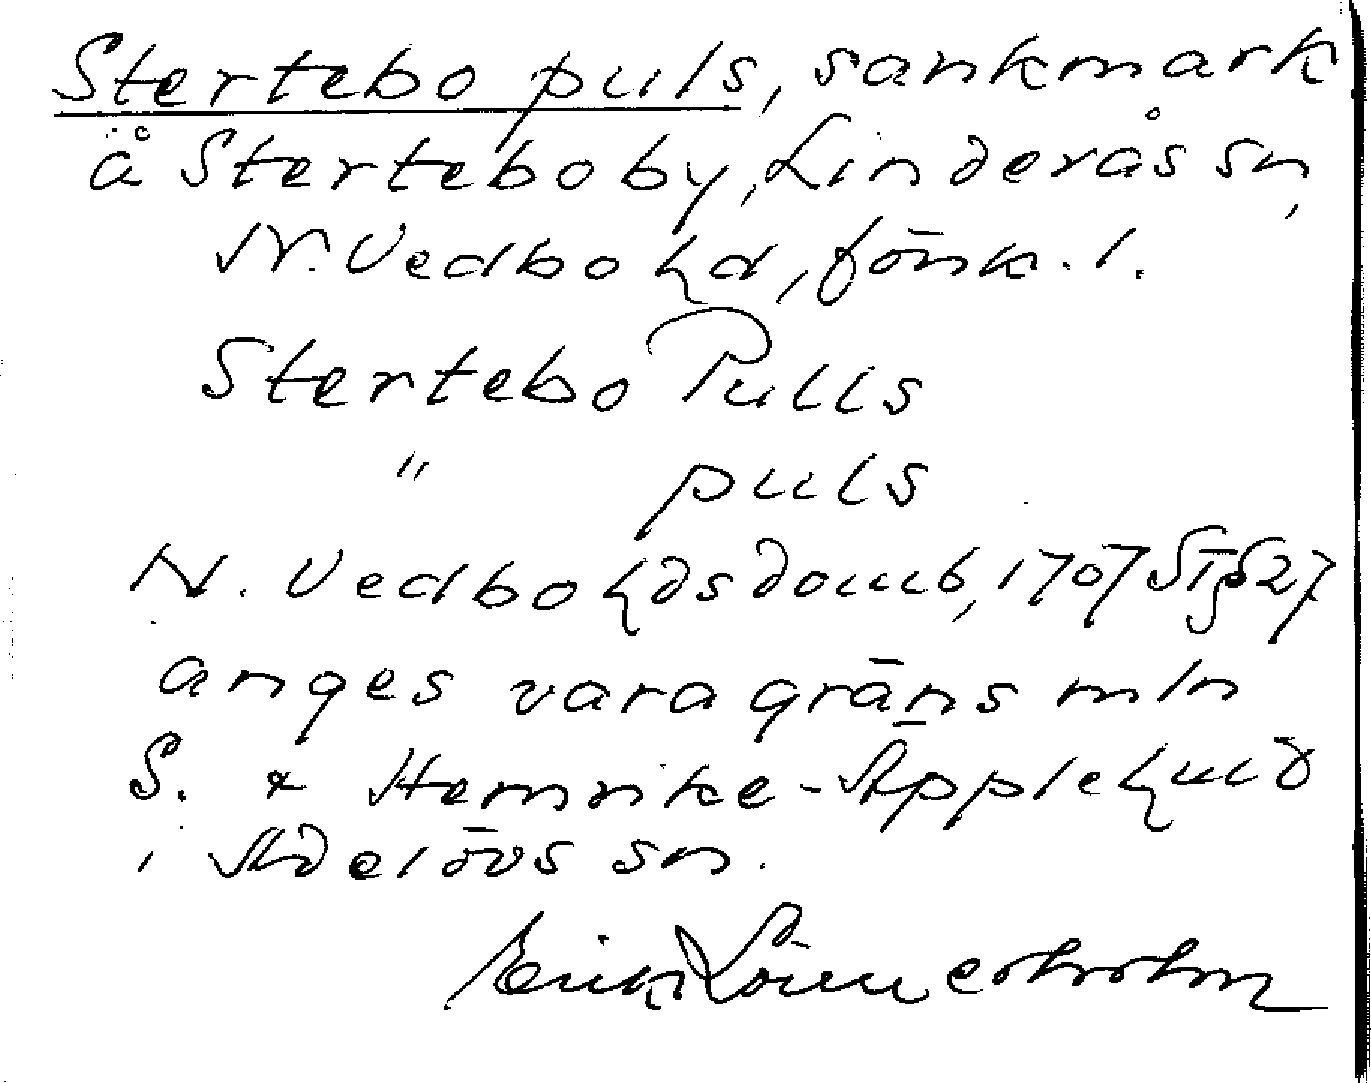 Stertebo puls, sankmark
å Stertebo by, Linderås sn,
N. Vedbo hd, Jönk. l.
Stertebo Pulls
" puls
N. Vedbo hds domb, 1707 27
anges vara gräns mln
S. & Hemrike-Äpplehult
i Adelövs sn.
Erik